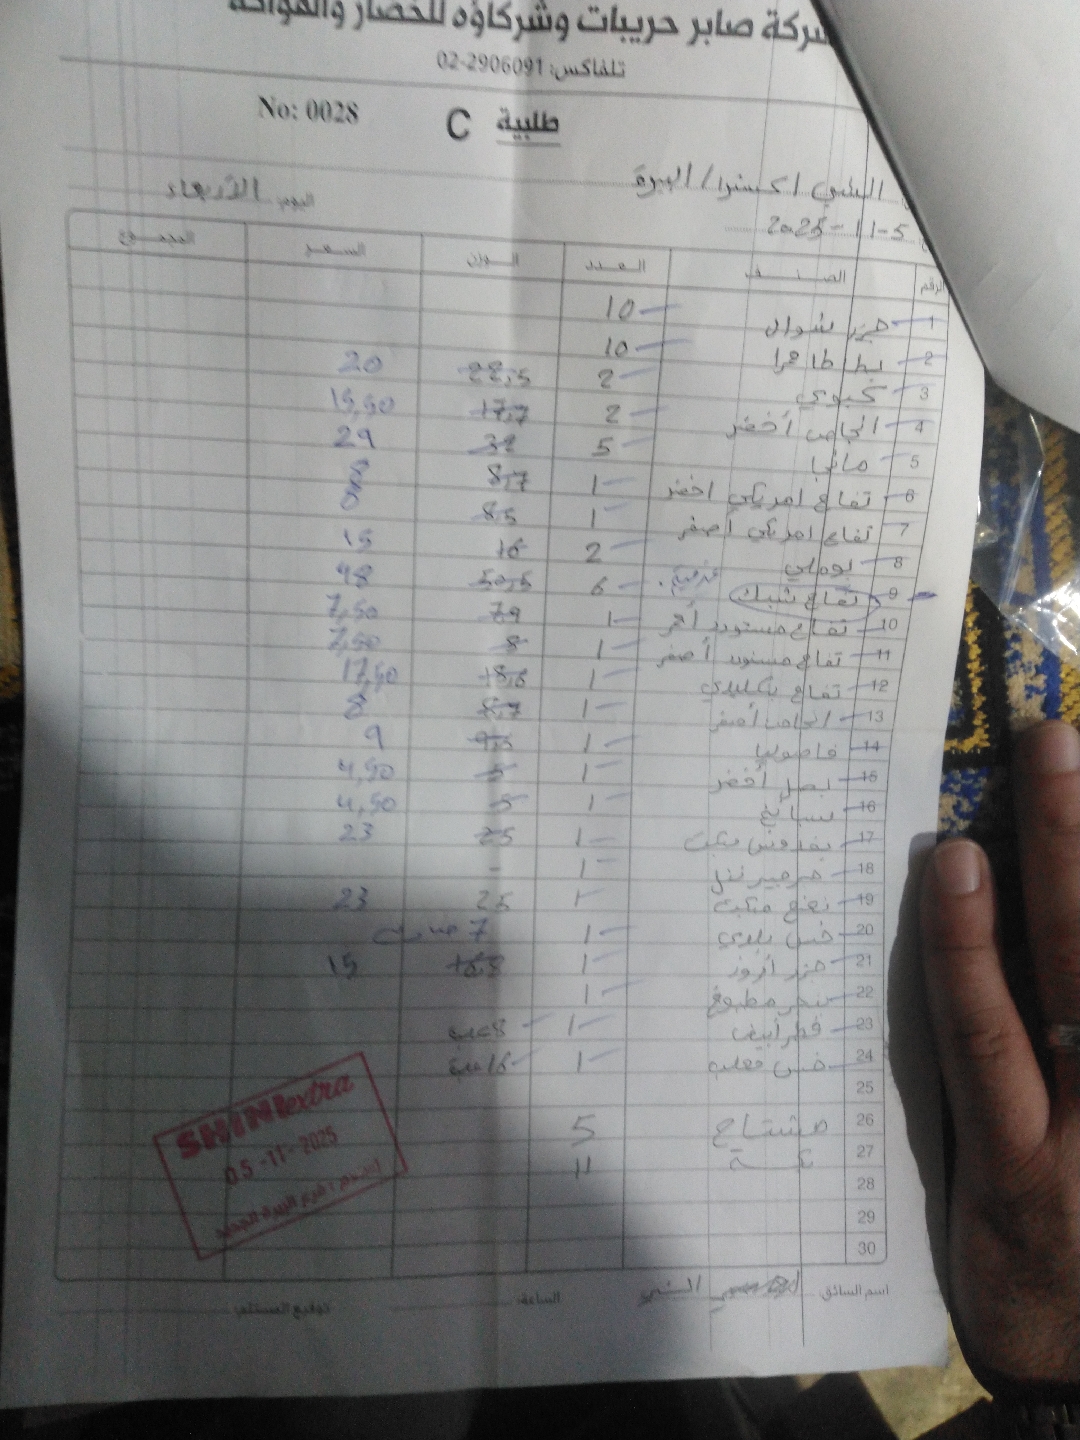 شركة صابر حريبات وشركاؤه للخضار والفواكه
تلفاكس: 02-2906091
طلبية C No: 0028
الشني اكسترا / البيرة اليوم: الأربعاء
2025-11-5
الرقم الصنف العدد الوزن السعر المجموع
1 جزر شوال 10
2 بطاطا 10
3 2 22,5 20
4 انجاص أخضر 2 17,7 15,50
5 5 32 29
6 تفاح امريكي اخضر 1 8,7 8
7 تفاح امريكي أصفر 1 8,5 8
8 بوملي 2 16 15
9 تفاح شبك 6 50,5 48
10 تفاح مستورد أحمر 1 7,9 7,50
11 تفاح مستورد أصفر 1 8 7,50
12 تفاح 1 18,6 17,50
13 انجاص أصفر 1 8,7 8
14 فاصوليا 1 9,5 9
15 بصل أخضر 1 5 4,50
16 سبانخ 1 5 4,50
17 بقدونس مكبت 1 25 23
18 جرجير 1 -
19 نعنع مكبت 1 25 23
20 خس بلدي 1 7
21 جزر أفروز 1 16,8 15
22 مطبوخ 1
23 فطر أبيض 1 8 علب
24 خس معلب 1 16 علب
25
26 مشتاح 5
27 11
28
29
30
SHINI extra
05-11-2025
اسم السائق الساعة: توقيع المستلم: